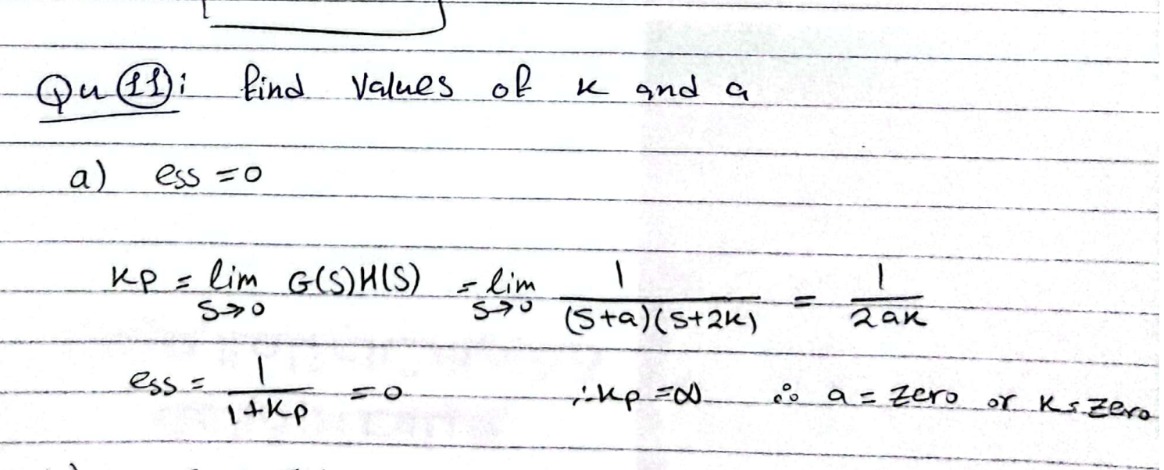 Qu 11: find values of k and a
a) ess = 0
Kp = lim S→0 G(S)H(S) = lim S→0 1/((S+a)(S+2k)) = 1/(2ak)
ess = 1/(1+Kp) = 0 ∴ Kp = ∞ ∴ a = zero or K = zero